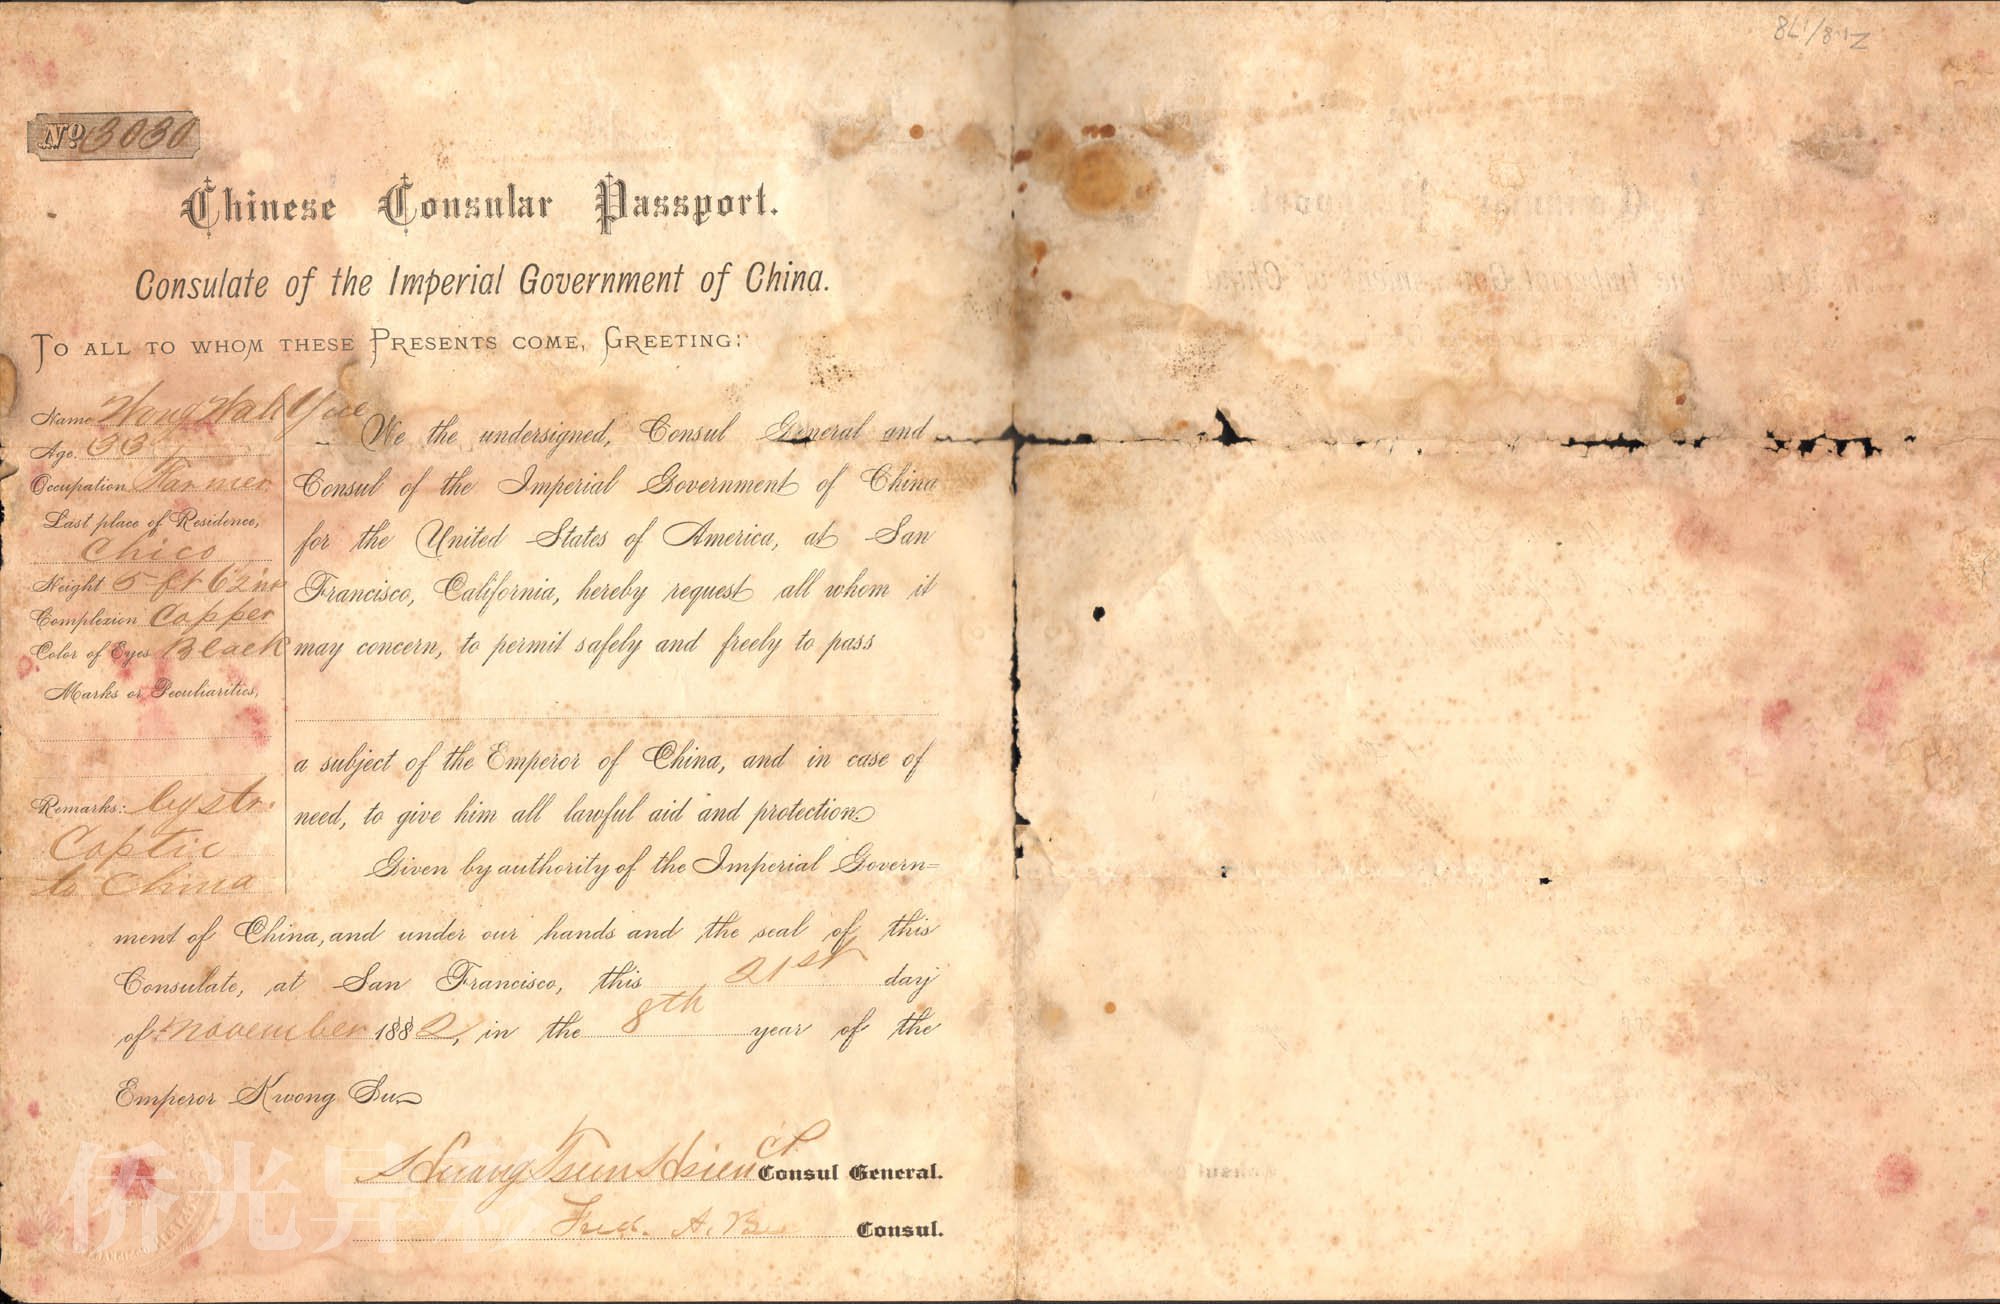 Z1.8/178
No 3030
Chinese Consular Passport.
Consulate of the Imperial Government of China.
TO ALL TO WHOM THESE PRESENTS COME, GREETING:
Name Wong Wah Yue
Age. 33
Occupation Farmer
Last place of Residence,
Chico
Height 5 ft 6 2 ins
Complexion Copper
Color of Eyes Black
Marks or Peculiarities,
Remarks: by str.
Coptic
to China
We the undersigned, Consul General and
Consul of the Imperial Government of China
for the United States of America, at San
Francisco, California, hereby request all whom it
may concern, to permit safely and freely to pass
a subject of the Emperor of China, and in case of
need, to give him all lawful aid and protection.
Given by authority of the Imperial Govern=
ment of China, and under our hands and the seal of this
Consulate, at San Francisco, this 21st day
of November 1882, in the 8th year of the
Emperor Kwong Su
Huang Tsun Hsien Consul General.
Fred. A. Consul.
侨光异彩